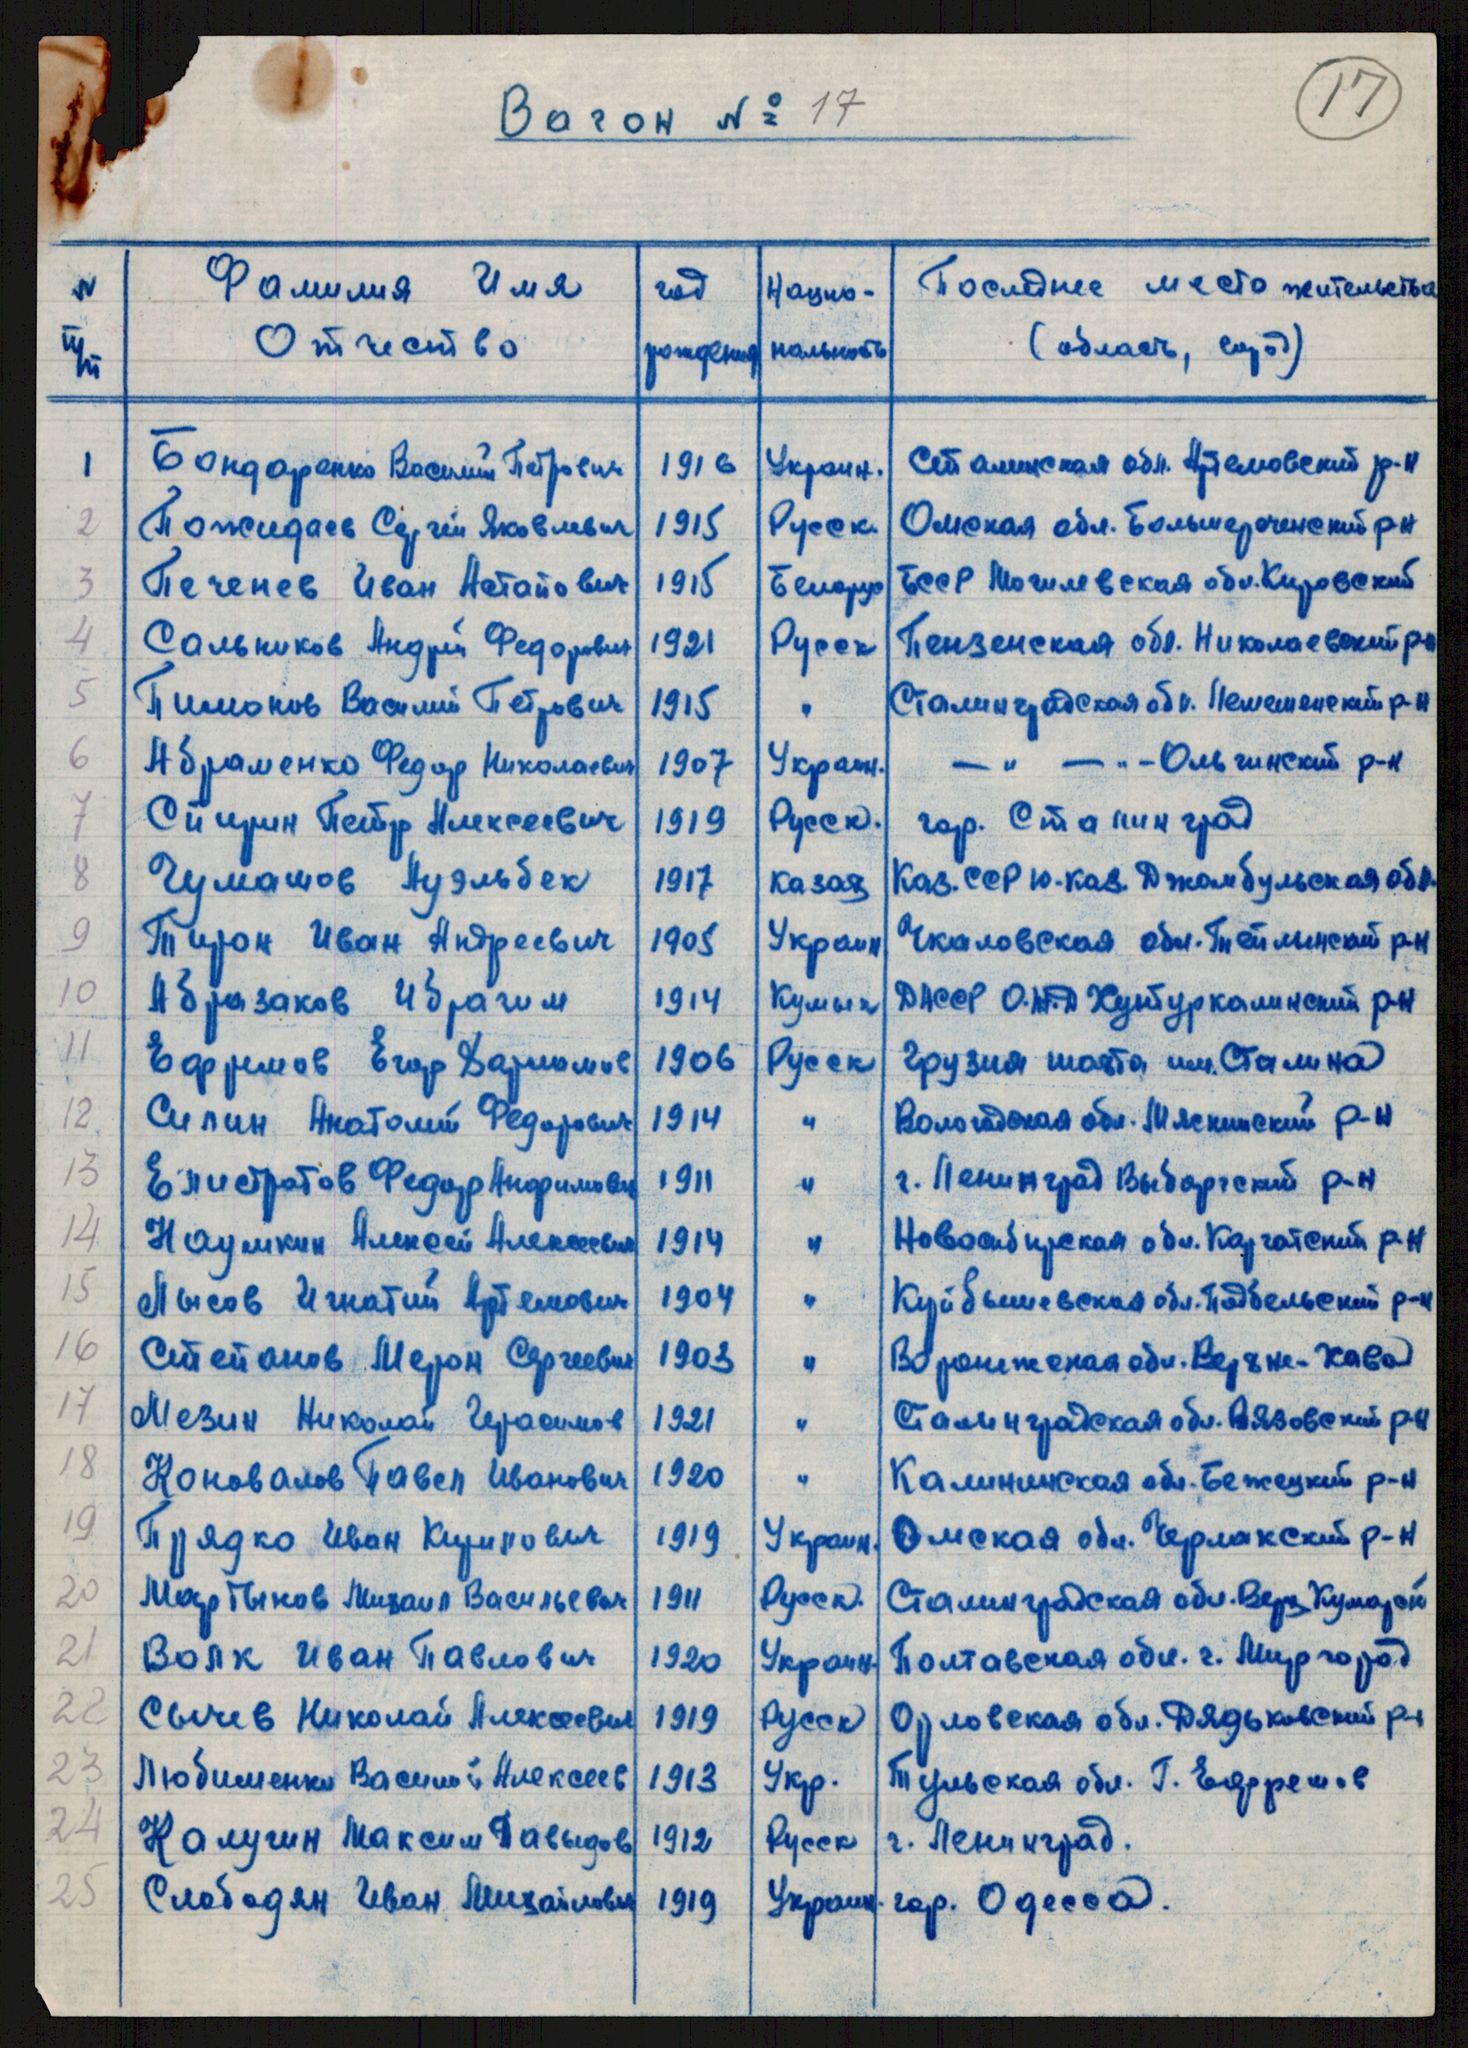 17
Вагон № 17
N п/п Фамилия Имя Отчество год рождения Нацио-нальность Последнее место жительства (область, город)
1 Бондаренко Василий Петрович 1916 Украин. Сталинская обл. Артемовский р-н
2 Пожидаев Сергей Яковлевич 1915 Русск. Омская обл. Большереченский р-н
3 Печенев Иван Астапович 1915 Белорус БССР Могилевская обл. Кировский
4 Сальников Андрей Федорович 1921 Русск Пензенская обл. Николаевский р-н
5 Пимонов Василий Петрович 1915 " Сталинградская обл. р-н
6 Абраменко Федор Николаевич 1907 Украин. — " — " - Ольгинский р-н
7 Спирин Петр Алексеевич 1919 Русск. гор. Сталинград
8 Чумашов Ауэльбек 1917 казах Каз. ССР Ю-каз. Джамбульская обл.
9 Тирон Иван Андреевич 1905 Украин Чкаловская обл. р-н
10 Абразаков Ибрагим 1914 Кумык ДАССР Хунтуркалинский р-н
11 Ефримов Егор Варламов 1906 Русск Грузия шахта им. Сталина
12 Силин Анатолий Федорович 1914 " Вологодская обл. Мяскинский р-н
13 Елистратов Федор Анфимович 1911 " г. Ленинград Выборгский р-н
14 Наумкин Алексей Алексеевич 1914 " Новосибирская обл. Каргатский р-н
15 Лысов Игнатий Артемович 1904 " Куйбышевская обл. Подбельский р-н
16 Степанов Мерон Сергеевич 1903 " Воронежская обл. Верхне-Хава
17 Мезин Николай Герасимов 1921 " Сталинградская обл. Вязовский р-н
18 Коновалов Павел Иванович 1920 " Калининская обл. Бежецкий р-н
19 Прядко Иван Кирилович 1919 Украин. Омская обл. Черлакский р-н
20 Мартынов Михаил Васильевич 1911 Русск. Сталинградская обл. Верх
21 Волк Иван Павлович 1920 Украин. Полтавская обл. г. Миргород
22 Сычев Николай Алексеевич 1919 Русск Орловская обл. Дядьковский р-н
23 Любименко Василий Алексеев 1913 Укр. Тульская обл. Г. Ефремов
24 Калугин Максим Давыдов 1912 Русск г. Ленинград.
25 Слободян Иван Михайлович 1919 Украин. гор. Одесса.